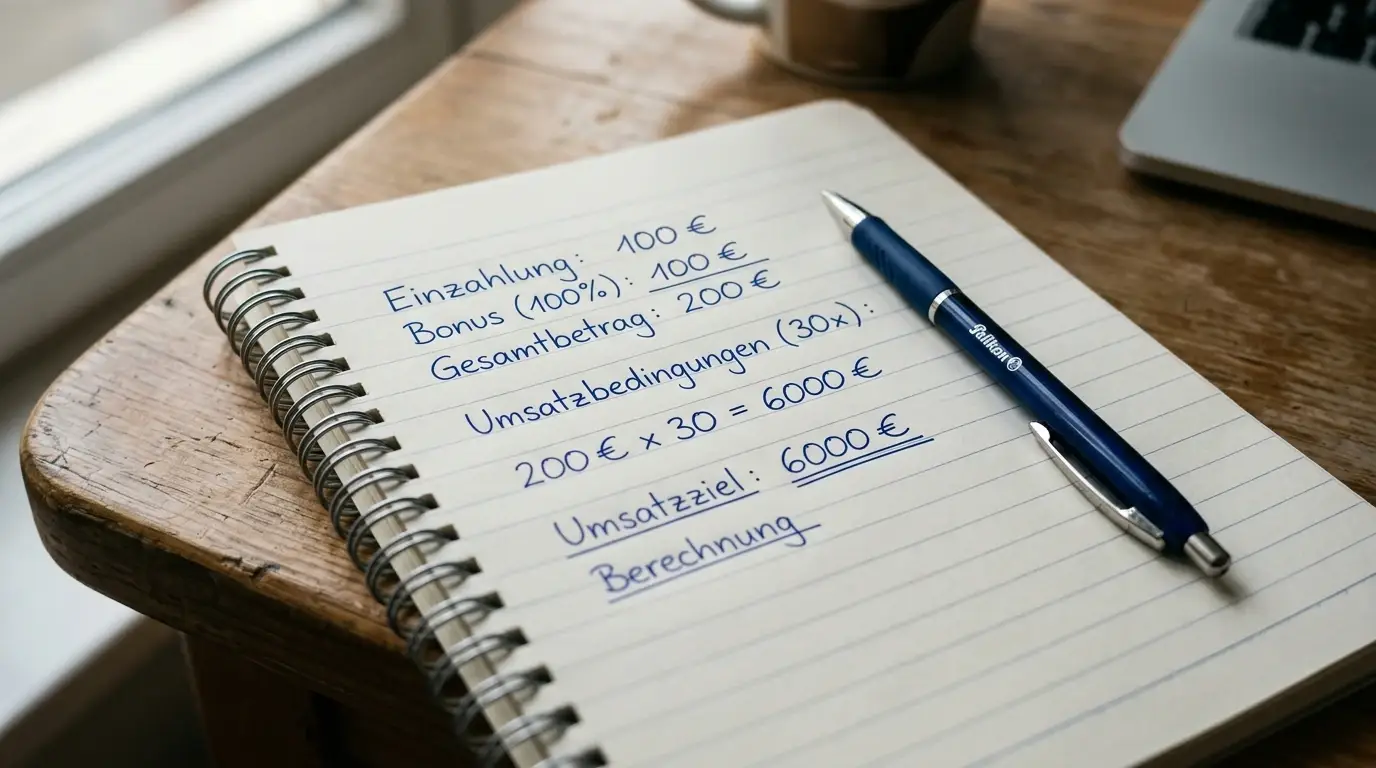 Einzahlung: 100 €
Bonus (100%): 100 €
Gesamtbetrag: 200 €
Umsatzbedingungen (30x):
200 € x 30 = 6000 €
Umsatzziel: 6000 €
Berechnung